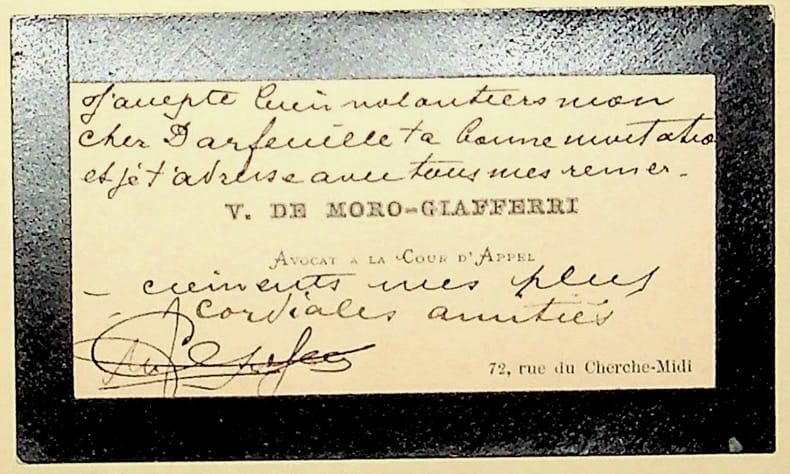 J'accepte bien volontiers mon
cher Darfeuille ta bonne invitatio
et je t'adresse avec tous mes remer-
V. DE MORO-GIAFFERRI
AVOCAT A LA COUR D'APPEL
- ciements mes plus
cordiales amitiés
72, rue du Cherche-Midi